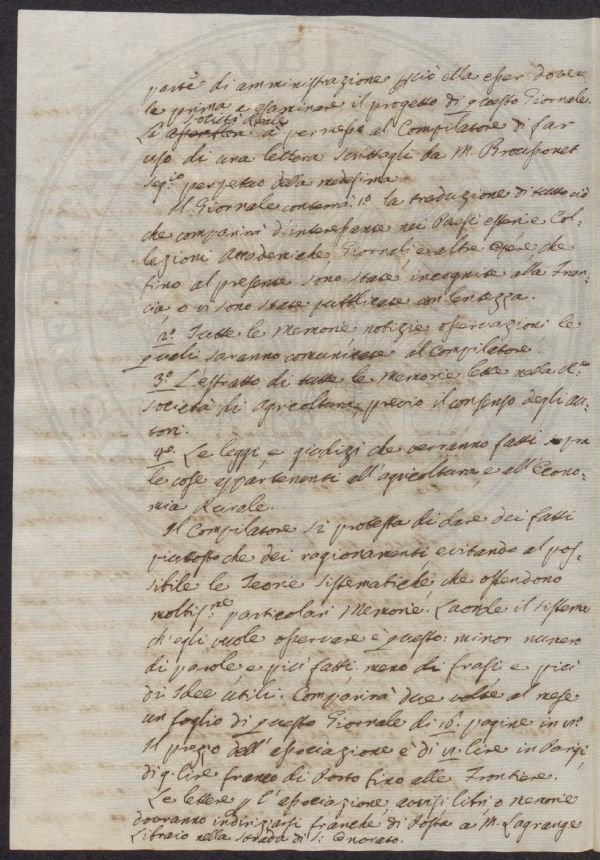 parte di amministrazione sicciò alla esser dovere
le prima e esaminare il progetto di questo Giornale.
La Società Reale à permesso al Compilatore di far
uso di una lettera scrittagli da M. Broussonet
seg.rio perpetuo della medesima.
Il Giornale conterrà: 1º la traduzione di tutto ciò
che comparirà d'interessante nei Paesi esteri e Col-
lezioni Accademiche Giornali e altre opere, che
fino al presente sono state incognite alla Fran-
cia o vi sono state pubblicate con lentezza.
2º. Tutte le Memorie notizie osservazioni le
quali saranno comunicate al Compilatore.
3º. L'estratto di tutte le Memorie lette nella R.e
Società di Agricoltura, previo il consenso degli au-
tori.
4º. Le leggi, e giudizi che verranno fatti sopra
le cose appartenenti all'agricoltura, e all'Econo-
mia Rurale.
Il Compilatore si protesta di dare dei fatti
piuttosto che dei ragionamenti evitando al pos-
sibile le Teorie sistematiche, che offendono
moltiss.me particolari Memorie. Laonde il sistema
ch'egli vuole osservare è questo: minor numero
di parole e più fatti: meno di frasi e più
di Idee utili. Comparirà due volte al mese
un foglio di questo Giornale di 16. pagine in
Il prezzo dell'associazione è di lire in Parigi,
di 9. lire franco di Porto fino alle Frontiere.
Le lettere p l'associazione, avvisi libri o memorie
dovranno indirizzarsi franche di Posta a M. Lagrange
Libraio nella strada di S. Onorato.